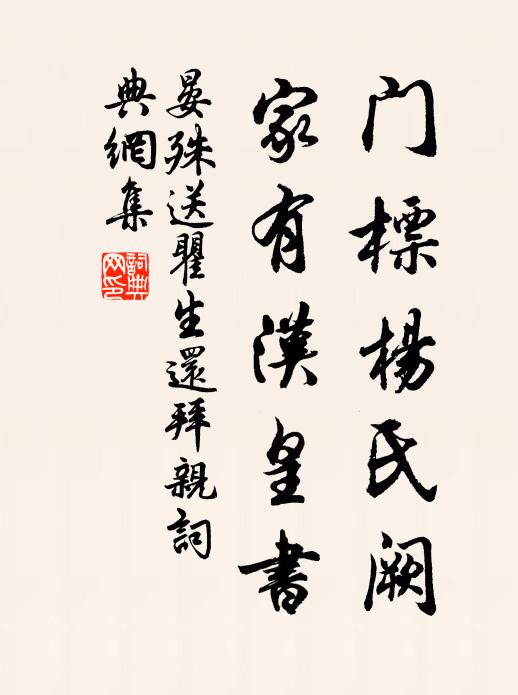 门標楊氏阙
家有漢皇書
晏殊送瞿生還拜親詞
典網集
詞典網印